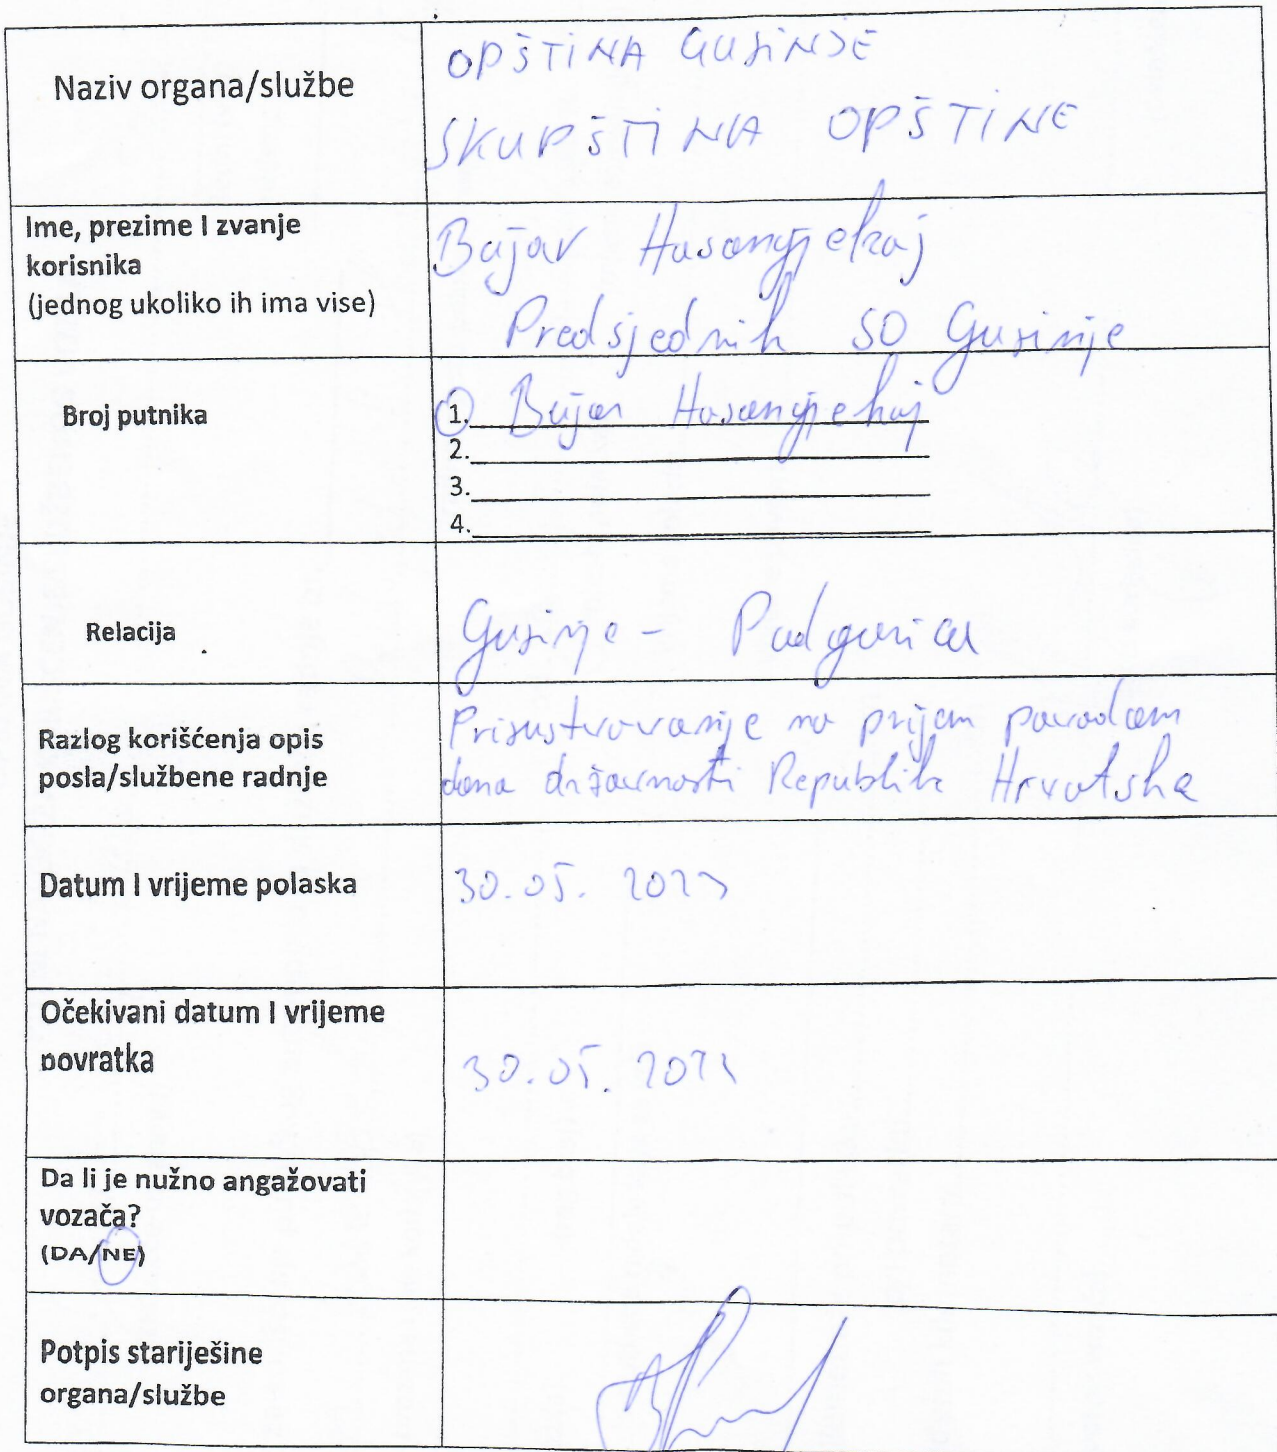 Naziv organa/službe
OPŠTINA GUSINJE
SKUPŠTINA OPŠTINE
Ime, prezime I zvanje
korisnika
(jednog ukoliko ih ima vise)
Bajar Hasangjekaj
Predsjednik SO Gusinje
Broj putnika
1. Bajar Hasangjekaj
2.
3.
4.
Relacija
Gusinje - Podgorica
Razlog korišćenja opis
posla/službene radnje
Prisustvovanje na prijem povodom
dana državnosti Republik Hrvatske
Datum I vrijeme polaska
30.05. 2023
Očekivani datum I vrijeme
povratka
30.05.
Da li je nužno angažovati
vozača?
(DA/NE)
Potpis starješine
organa/službe